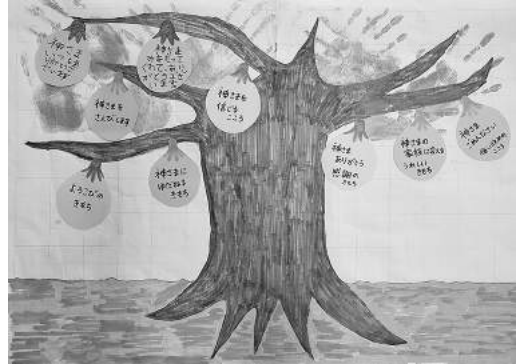 神さま
いつも
ありがとう
ございます
神さま
神さまを
さんびします
神さまを
信じる
こころ
よろこびの
きもち
神さまに
ゆだねる
きもち
神さま
ありがとう
感謝の
きもち
神さまの
家族に加える
うれしい
きもち
神さま
ごめんなさい
こころ